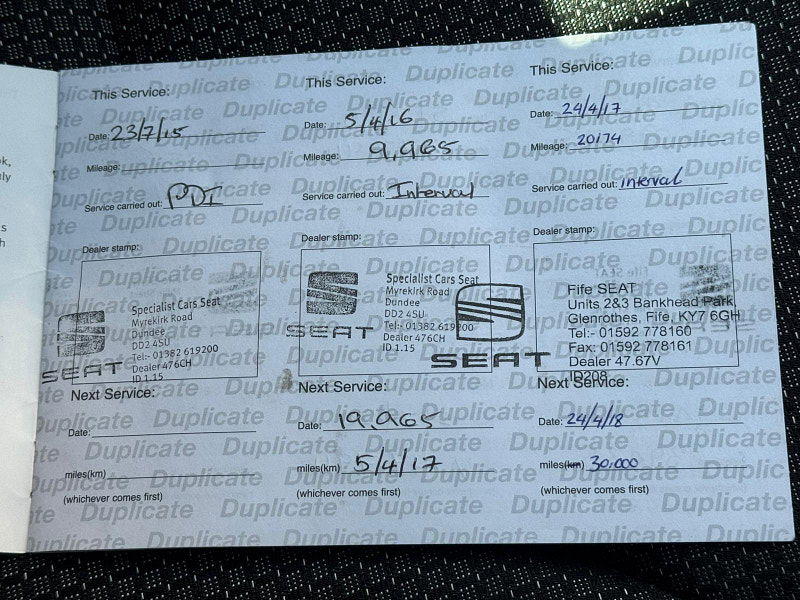 This Service:
Date: 23/7/15
Mileage:
Service carried out: PDI
Dealer stamp:
SEAT
Specialist Cars Seat
Myrekirk Road
Dundee
DD2 4SU
Tel:- 01382 619200
Dealer 476CH
ID 1.15
Next Service:
Date:
miles(km)
(whichever comes first)
This Service:
Date: 5/4/16
Mileage: 9,965
Service carried out: Interval
Dealer stamp:
SEAT
Specialist Cars Seat
Myrekirk Road
Dundee
DD2 4SU
Tel:- 01382 619200
Dealer 476CH
ID 1.15
Next Service:
Date: 19,965
miles(km) 5/4/17
(whichever comes first)
This Service:
Date: 24/4/17
Mileage: 20174
Service carried out: interval
Dealer stamp:
SEAT
Fife SEAT
Units 2&3 Bankhead Park
Glenrothes, Fife, KY7 6GH
Tel:- 01592 778160
Fax: 01592 778161
Dealer 47.67V
ID208
Next Service:
Date: 24/4/18
miles(km) 30,000
(whichever comes first)
Duplicate